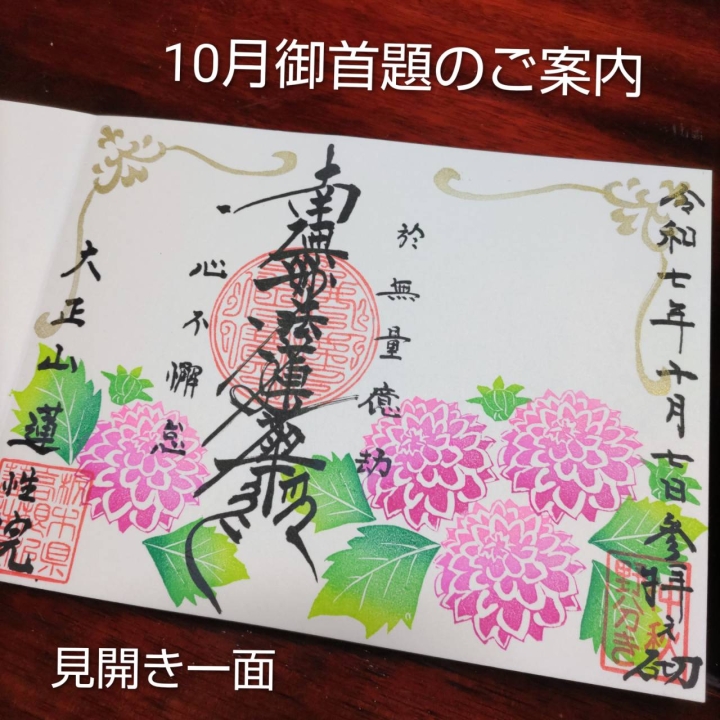 10月御首題のご案内
令和七年十月七日参拝之砌
於無量億劫
南無妙法蓮華経
心不懈怠
大正山蓮性院
見開き一面